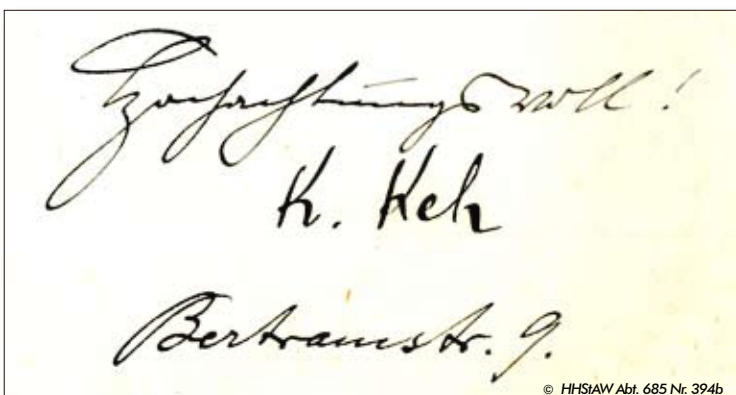 Hochachtungsvoll!
K. Keh
Bertramstr. 9.
© HHStAW Abt. 685 Nr. 394b